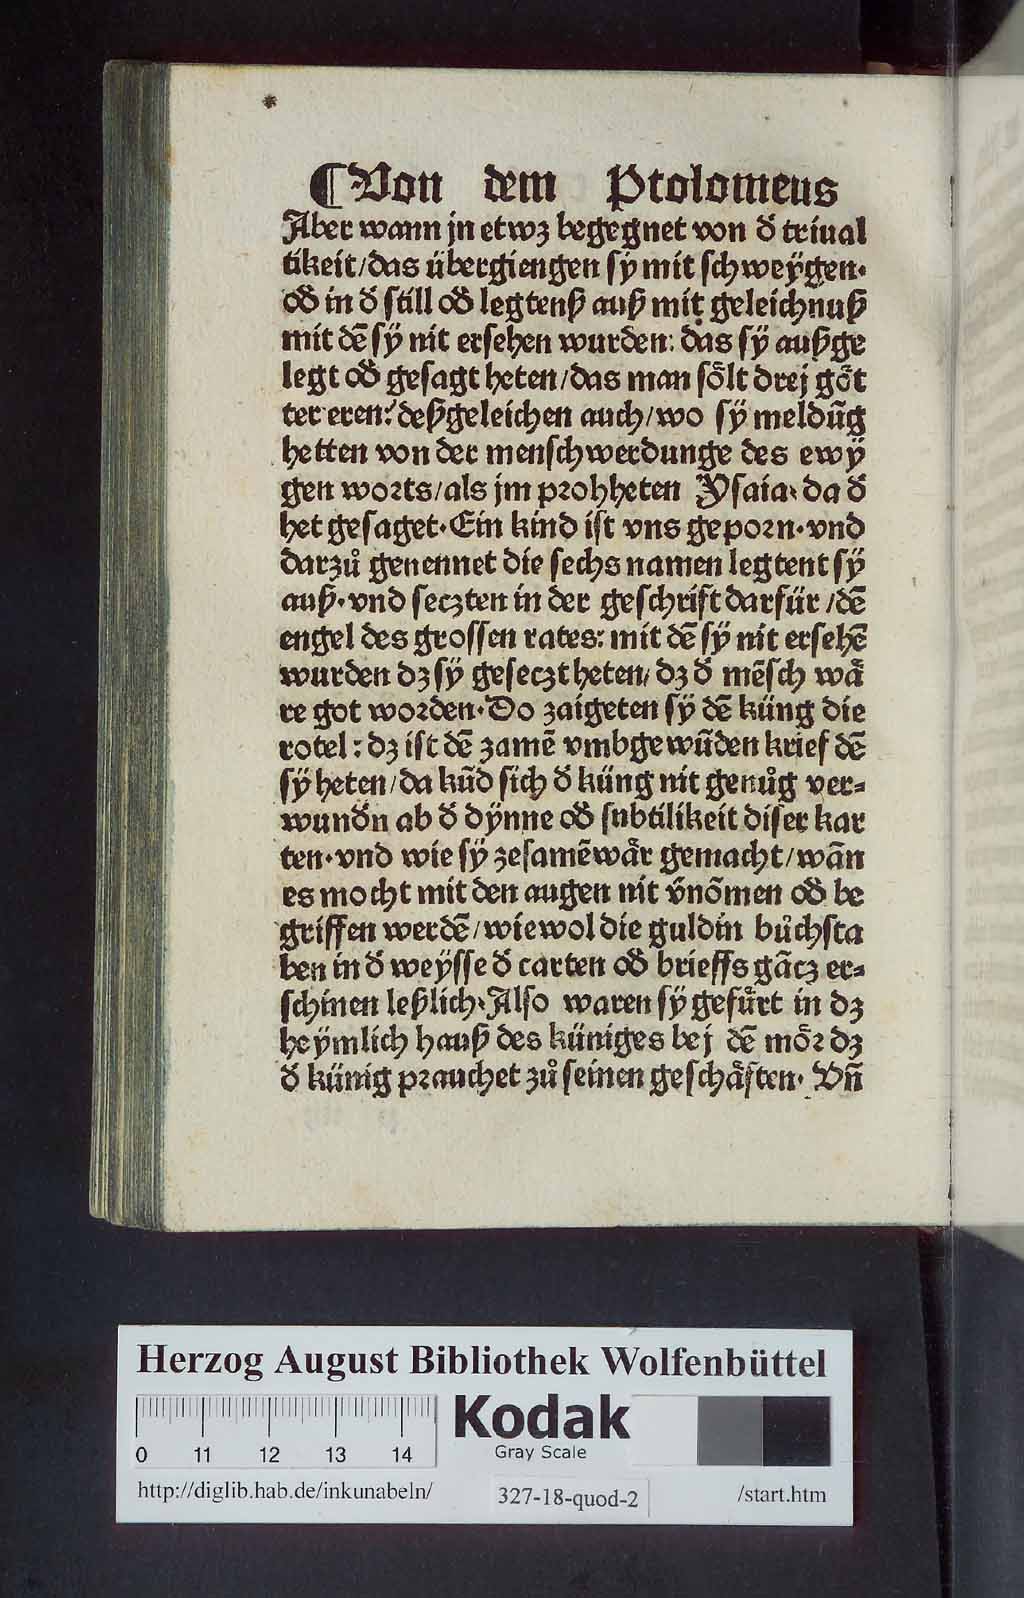 ¶Von dem Ptolomeus
Aber wann jn etwz begegnet von d̕ triual
tikeit/das übergiengen sÿ mit schweÿgen·
od̕ in d̕ still od̕ legtenß auß mit geleichnuß
mit dē sÿ nit ersehen wurden: das sÿ außge
legt od̕ gesagt heten/das man soͤlt drej goͤt
ter eren: deßgeleichen auch/wo sÿ meldūg
hetten von der menschwerdunge des ewÿ
gen worts/als jm prohheten Ysaia· da d̕
het gesaget·Ein kind ist vns geporn·vnd
darzů genennet die sechs namen legtent sÿ
auß·vnd seczten in der geschrift darfür/dē
engel des grossen rates: mit dē sÿ nit ersehē
wurden dz sÿ geseczt heten/dz d̕ mēsch waͤ
re got worden·Do zaigeten sÿ dē küng die
rotel: dz ist dē zamē vmbgewūden krief dē
sÿ heten/da kūd sich d̕ küng nit genůg ver⸗
wund̕n ab d̕ dÿnne od̕ subtilikeit diser kar
ten·vnd wie sÿ zesamēwaͤr gemacht/wān
es mocht mit den augen nit v̄nōmen od̕ be
griffen werdē/wiewol die guldin bůchsta
ben in d̕ weÿsse d̕ carten od̕ brieffs gācz er⸗
schinen leßlich·Also waren sÿ gefuͤrt in dz
heÿmlich hauß des küniges bej dē moͤr dz
d̕ künig prauchet zů seinen geschaͤften· Vn̄
Herzog August Bibliothek Wolfenbüttel
0 11 12 13 14
Kodak
Gray Scale
http://diglib.hab.de/inkunabeln/ 327-18-quod-2 /start.htm